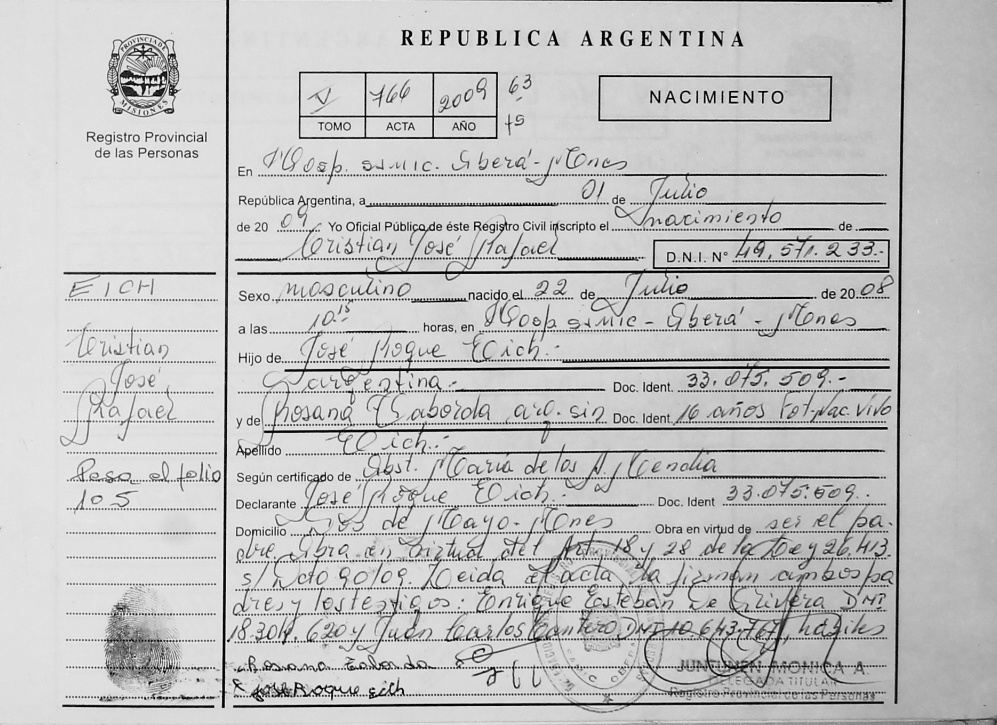 REPUBLICA ARGENTINA
PROVINCIA DE MISIONES
Registro Provincial
de las Personas
V 766 2009 63
TOMO ACTA AÑO 75
NACIMIENTO
En Hosp. Samic. Oberá - Mnes
República Argentina, a 01 de Julio
de 20 09 Yo Oficial Público de éste Registro Civil inscripto el nacimiento de
Cristian José Rafael D.N.I. N° 49.571.233.-
EICH
Cristian
José
Rafael
Pasa al folio
105
Sexo masculino nacido el 22 de Julio de 20 08
a las 10.15 horas, en Hosp Samic - Oberá - Mnes
Hijo de José Roque Eich.-
argentina.- Doc. Ident. 33.075.509.-
y de Rosana Taborda arg. sin Doc. Ident. 16 años Fot. Nac. vivo
Apellido Eich.-
Según certificado de Obst. María de los A. Mendia
Declarante José Roque Eich.- Doc. Ident 33.075.509.-
Domicilio de Mayo - Mnes Obra en virtud de ser el pa-
dre. Obra en virtud del Art. 18 y 28 de la Ley 26.413
s/ Dcto 90/09. Leida el acta la firman ambos pa
dres y los testigos: Enrique Esteban De Olivera DNI
18.304.620 y Juan Carlos Cantero DNI 10.643.767, hábiles
Rosana Taborda
José Roque eich
JUNTUNEN MONICA A.
DELEGADA TITULAR
Registro Provincial de las Personas